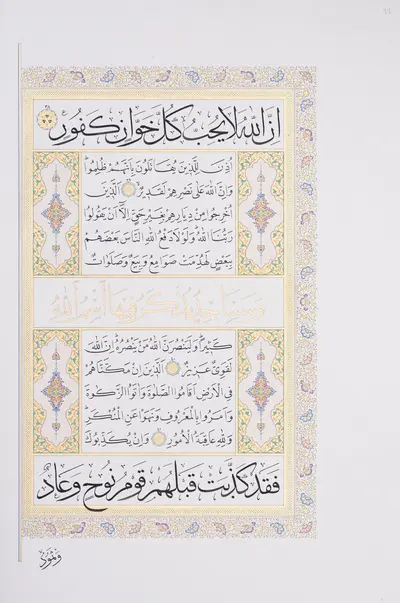 اِنَّ اللّٰهَ لَا يُحِبُّ كُلَّ خَوَّانٍ كَفُورٍ
اُذِنَ لِلَّذِينَ يُقَاتَلُونَ بِاَنَّهُمْ ظُلِمُوا
وَاِنَّ اللّٰهَ عَلٰى نَصْرِهِمْ لَقَدِيرٌ اَلَّذِينَ
اُخْرِجُوا مِنْ دِيَارِهِمْ بِغَيْرِ حَقٍّ اِلَّا اَنْ يَقُولُوا
رَبُّنَا اللّٰهُ وَلَوْلَا دَفْعُ اللّٰهِ النَّاسَ بَعْضَهُمْ
بِبَعْضٍ لَهُدِّمَتْ صَوَامِعُ وَبِيَعٌ وَصَلَوَاتٌ
وَمَسَاجِدُ يُذْكَرُ فِيهَا اسْمُ اللّٰهِ
كَثِيرًا وَلَيَنْصُرَنَّ اللّٰهُ مَنْ يَنْصُرُهُ اِنَّ اللّٰهَ
لَقَوِيٌّ عَزِيزٌ اَلَّذِينَ اِنْ مَكَّنَّاهُمْ
فِي الْاَرْضِ اَقَامُوا الصَّلٰوةَ وَاٰتَوُا الزَّكٰوةَ
وَاَمَرُوا بِالْمَعْرُوفِ وَنَهَوْا عَنِ الْمُنْكَرِ
وَلِلّٰهِ عَاقِبَةُ الْاُمُورِ وَاِنْ يُكَذِّبُوكَ
فَقَدْ كَذَّبَتْ قَبْلَهُمْ قَوْمُ نُوحٍ وَعَادٌ
وَثَمُودُ